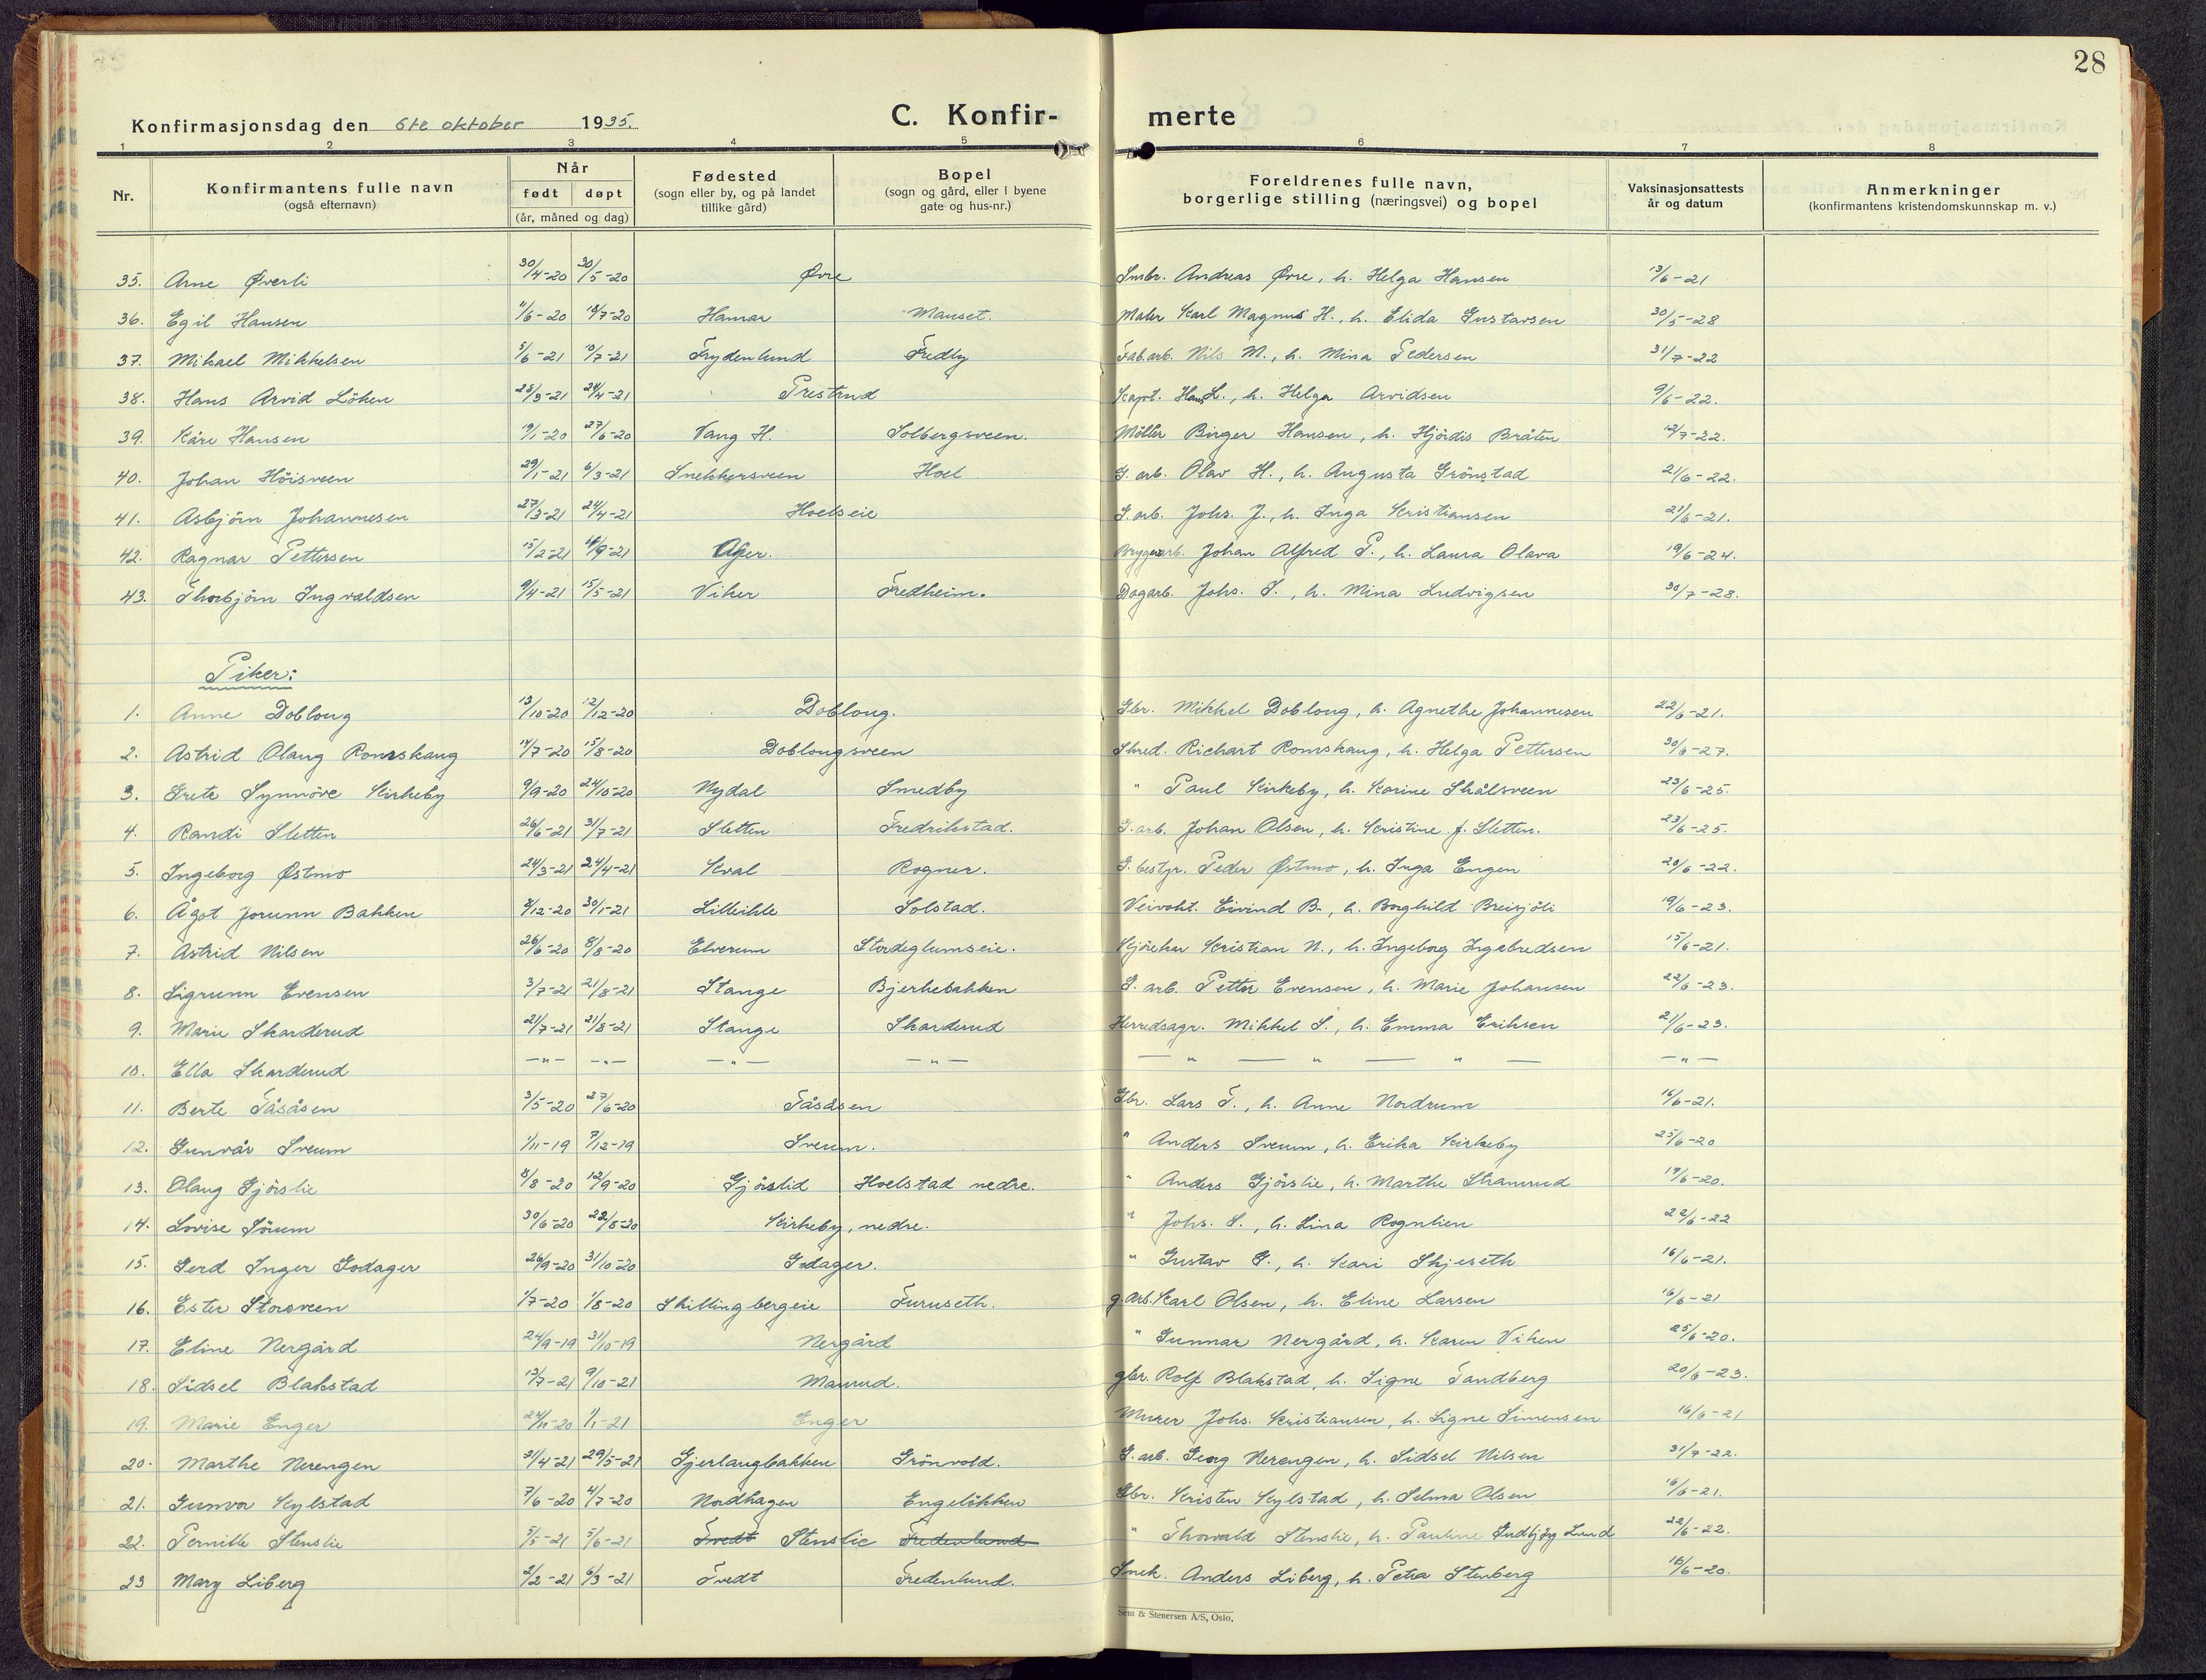 28
Konfirmasjonsdag den 6te oktober 1935. C. Konfir- merte
1 2 3 4 5 6 7 8
Nr. Konfirmantens fulle navn (også efternavn) Når født døpt (år, måned og dag) Fødested (sogn eller by, og på landet tillike gård) Bopel (sogn og gård, eller i byene gate og hus-nr.) Foreldrenes fulle navn, borgerlige stilling (næringsvei) og bopel Vaksinasjonsattests år og datum Anmerkninger (konfirmantens kristendomskunnskap m. v.)
35. Arne Øverli 30/4-20 30/5-20 Øvre Smbr. Andreas Øvre, h. Helga Hansen 13/6-21
36. Egil Hansen 11/6-20 18/7-20 Hamar Mauset. Maler Karl Magnus H., h. Elida Gustavsen 30/5-28
37. Mikael Mikkelsen 5/6-21 10/7-21 Frydenlund Fredly Fab.arb. Nils M., h. Mina Pedersen 31/7-22
38. Hans Arvid Löken 28/3-21 24/4-21 Prestrud Kapt. Hans L., h. Helga Arvidsen 9/6-22.
39. Kåre Hansen 19/1-20 27/6-20 Vang H. Solbergsveen. Möller Birger Hansen, h. Hjördis Bråten 12/7-22.
40. Johan Höisveen 29/1-21 6/3-21 Snekkersveen Hoel G. arb. Olav H., h. Augusta Grönstad 21/6-22.
41. Asbjörn Johannesen 27/3-21 24/4-21 Hoelseie G. arb. Johs. J., h. Inga Kristiansen 21/6-21.
42. Ragnar Pettersen 15/2-21 18/9-21 Aker. Bryggeriarb. Johan Alfred P., h. Laura Olava 19/6-24.
43. Thorbjörn Ingvaldsen 9/4-21 15/5-21 Viker Fredheim. Dagarb. Johs. I., h. Mina Ludvigsen 30/7-28.
Piker:
1. Anne Dobloug 13/10-20 12/12-20 Dobloug. Gbr. Mikkel Dobloug, h. Agnethe Johannesen 22/6-21.
2. Astrid Olaug Romskaug 14/7-20 15/8-20 Doblougsveen Skred. Richart Romskaug, h. Helga Pettersen 30/6-27.
3. Grete Synnöve Kirkeby 9/9-20 24/10-20 Nydal Smedby " Paul Kirkeby, h. Karine Skålsveen 23/6-25.
4. Randi Sletten 26/6-21 31/7-21 Sletten Fredrikstad. G. arb. Johan Olsen, h. Kristine f. Sletten. 23/6-25.
5. Ingeborg Østmo 24/3-21 24/4-21 Kval Rogner. G. bestyr. Peder Østmo, h. Inga Engen 20/6-22.
6. Ågot Jorunn Bakken 8/12-20 30/1-21 Lilleihle Solstad. Veivokt. Eivind B., h. Borghild Breisjöli 19/6-23.
7. Astrid Nilsen 26/6-20 8/8-20 Elverum Stordeglumseie. Kjörekar Kristian N., h. Ingeborg Ingebredsen 15/6-21.
8. Sigrunn Evensen 3/7-21 21/8-21 Stange Bjerkebakken G. arb. Petter Evensen, h. Marie Johansen 22/6-23.
9. Marie Skarderud 21/7-21 21/8-21 Stange Skarderud Herredsagr. Mikkel S., h. Emma Eriksen 21/6-23.
10. Ella Skarderud —"— —"— —"— —"— — " — " — " — —"—
11. Berte Tåsåsen 3/5-20 27/6-20 Tåsåsen Gbr. Lars T., h. Anne Nordrum 16/6-21.
12. Gunvår Sveum 1/11-19 7/12-19 Sveum. " Anders Sveum, h. Erika Kirkeby 25/6-20
13. Olaug Gjörslie 8/8-20 12/9-20 Gjörslid Hoelstad nedre. " Anders Gjörslie, h. Marthe Skamrud 17/6-20.
14. Lovise Sörum 30/6-20 22/8-20 Kirkeby, nedre. " Johs. S., h. Lina Rognlien 22/6-22
15. Gerd Inger Godager 26/9-20 31/10-20 Godager. " Gustav G., h. Kari Skjeseth 16/6-21.
16. Ester Storsveen 1/7-20 1/8-20 Skillingbergeie Furuseth. g. arb. Karl Olsen, h. Eline Larsen 16/6-21
17. Eline Nergård 24/9-19 31/10-19 Nergård " Gunnar Nergård, h. Karen Viken 25/6-20.
18. Sidsel Blakstad 13/7-21 9/10-21 Maurud. gbr. Rolf Blakstad, h. Signe Sandberg 20/6-23.
19. Marie Enger 24/11-20 1/1-21 Enger Murer Johs. Kristiansen, h. Signe Simensen 16/6-21
20. Marthe Nerengen 21/4-21 29/5-21 Gjerlaugbakken Grönvold. G. arb. Georg Nerengen, h. Sidsel Nilsen 31/7-22.
21. Gunvor Kylstad 7/6-20 4/7-20 Nordhagen Engelökken Gbr. Kristen Kylstad, h. Selma Olsen 16/6-21.
22. Pernille Stenslie 5/5-21 5/6-21 Tvedt Stenslie Fredenlund " Thorvald Stenslie, h. Pauline Gudbjørg Lund 22/6-22.
23 Mary Liberg 2/2-21 6/3-21 Tvedt Fredenlund. Snek. Anders Liberg, h. Petra Stenberg 16/6-20.
Sem & Stenersen A/S, Oslo.